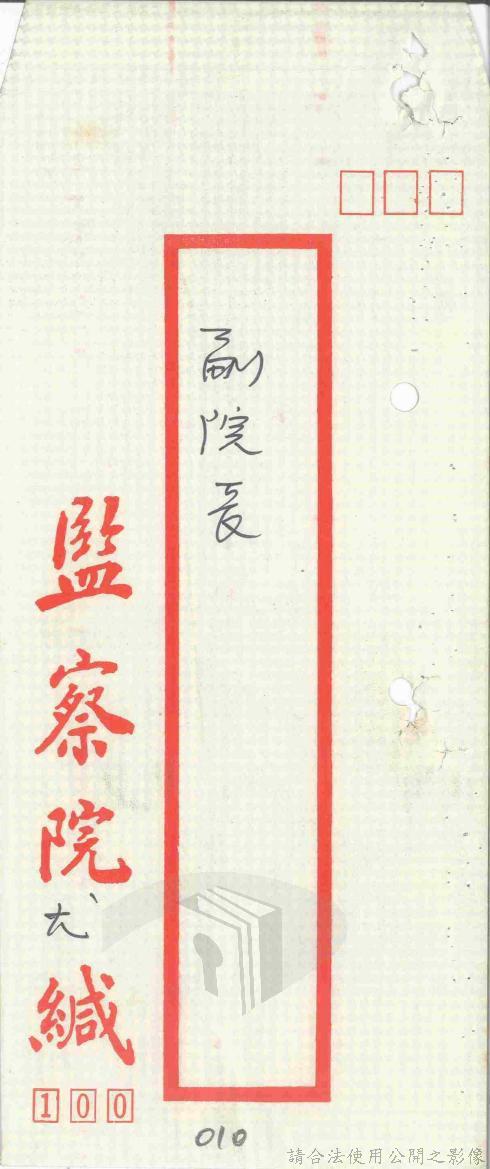 副院長
監察院
尤
緘
100
010
請合法使用公開之影像